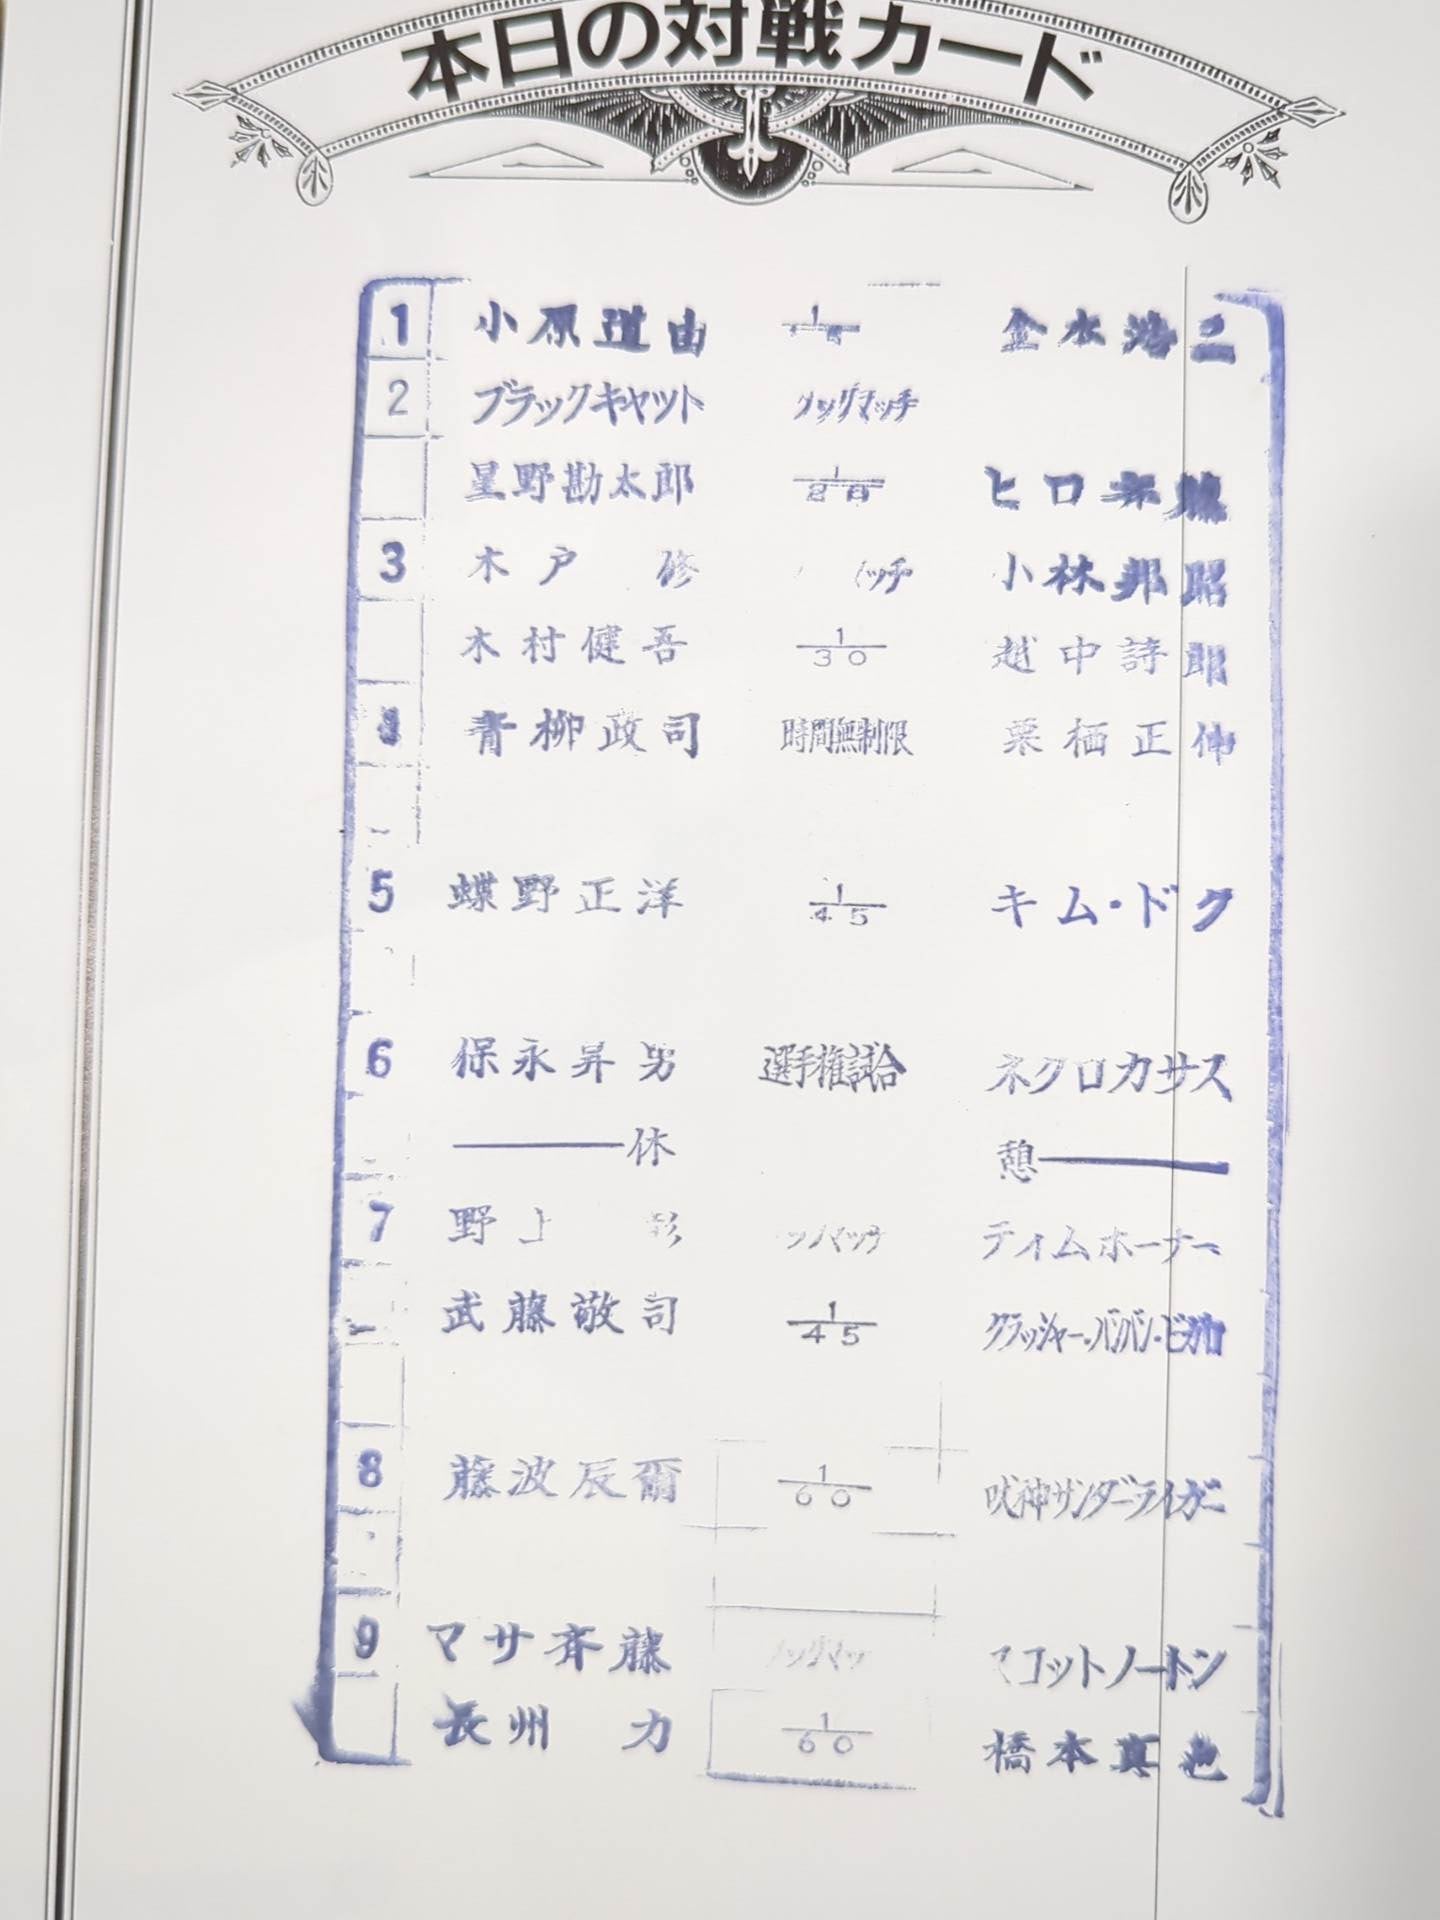 本日の対戦カード
1 小原道由 1 金本浩二
2 ブラックキャット タッグマッチ
星野勘太郎 1/20 ヒロ斉藤
3 木戸 修 ッチ 小林邦昭
木村健吾 1/30 越中詩郎
青柳政司 時間無制限 栗栖正伸
5 蝶野正洋 1/45 キム・ドク
6 保永昇男 選手権試合 ネグロカサス
休 憩
7 野上 彰 マッチ ティムホーナー
武藤敬司 1/45 クラッシャー・バンバン・ビガロ
8 藤波辰爾 1/60 獣神サンダーライガー
9 マサ斉藤 ッグマッ スコットノートン
長州 力 1/60 橋本真也